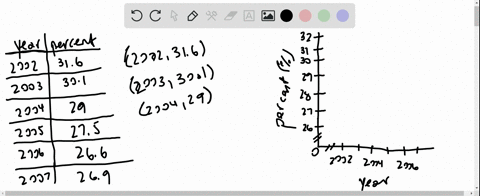 year percent
2002 31.6
2003 30.1
2004 29
2005 27.5
2006 26.6
2007 26.9
(2002, 31.6)
(2003, 30.1)
(2004, 29)
percent (%)
32
31
30
29
28
27
26
0
2002 2004 2006
year